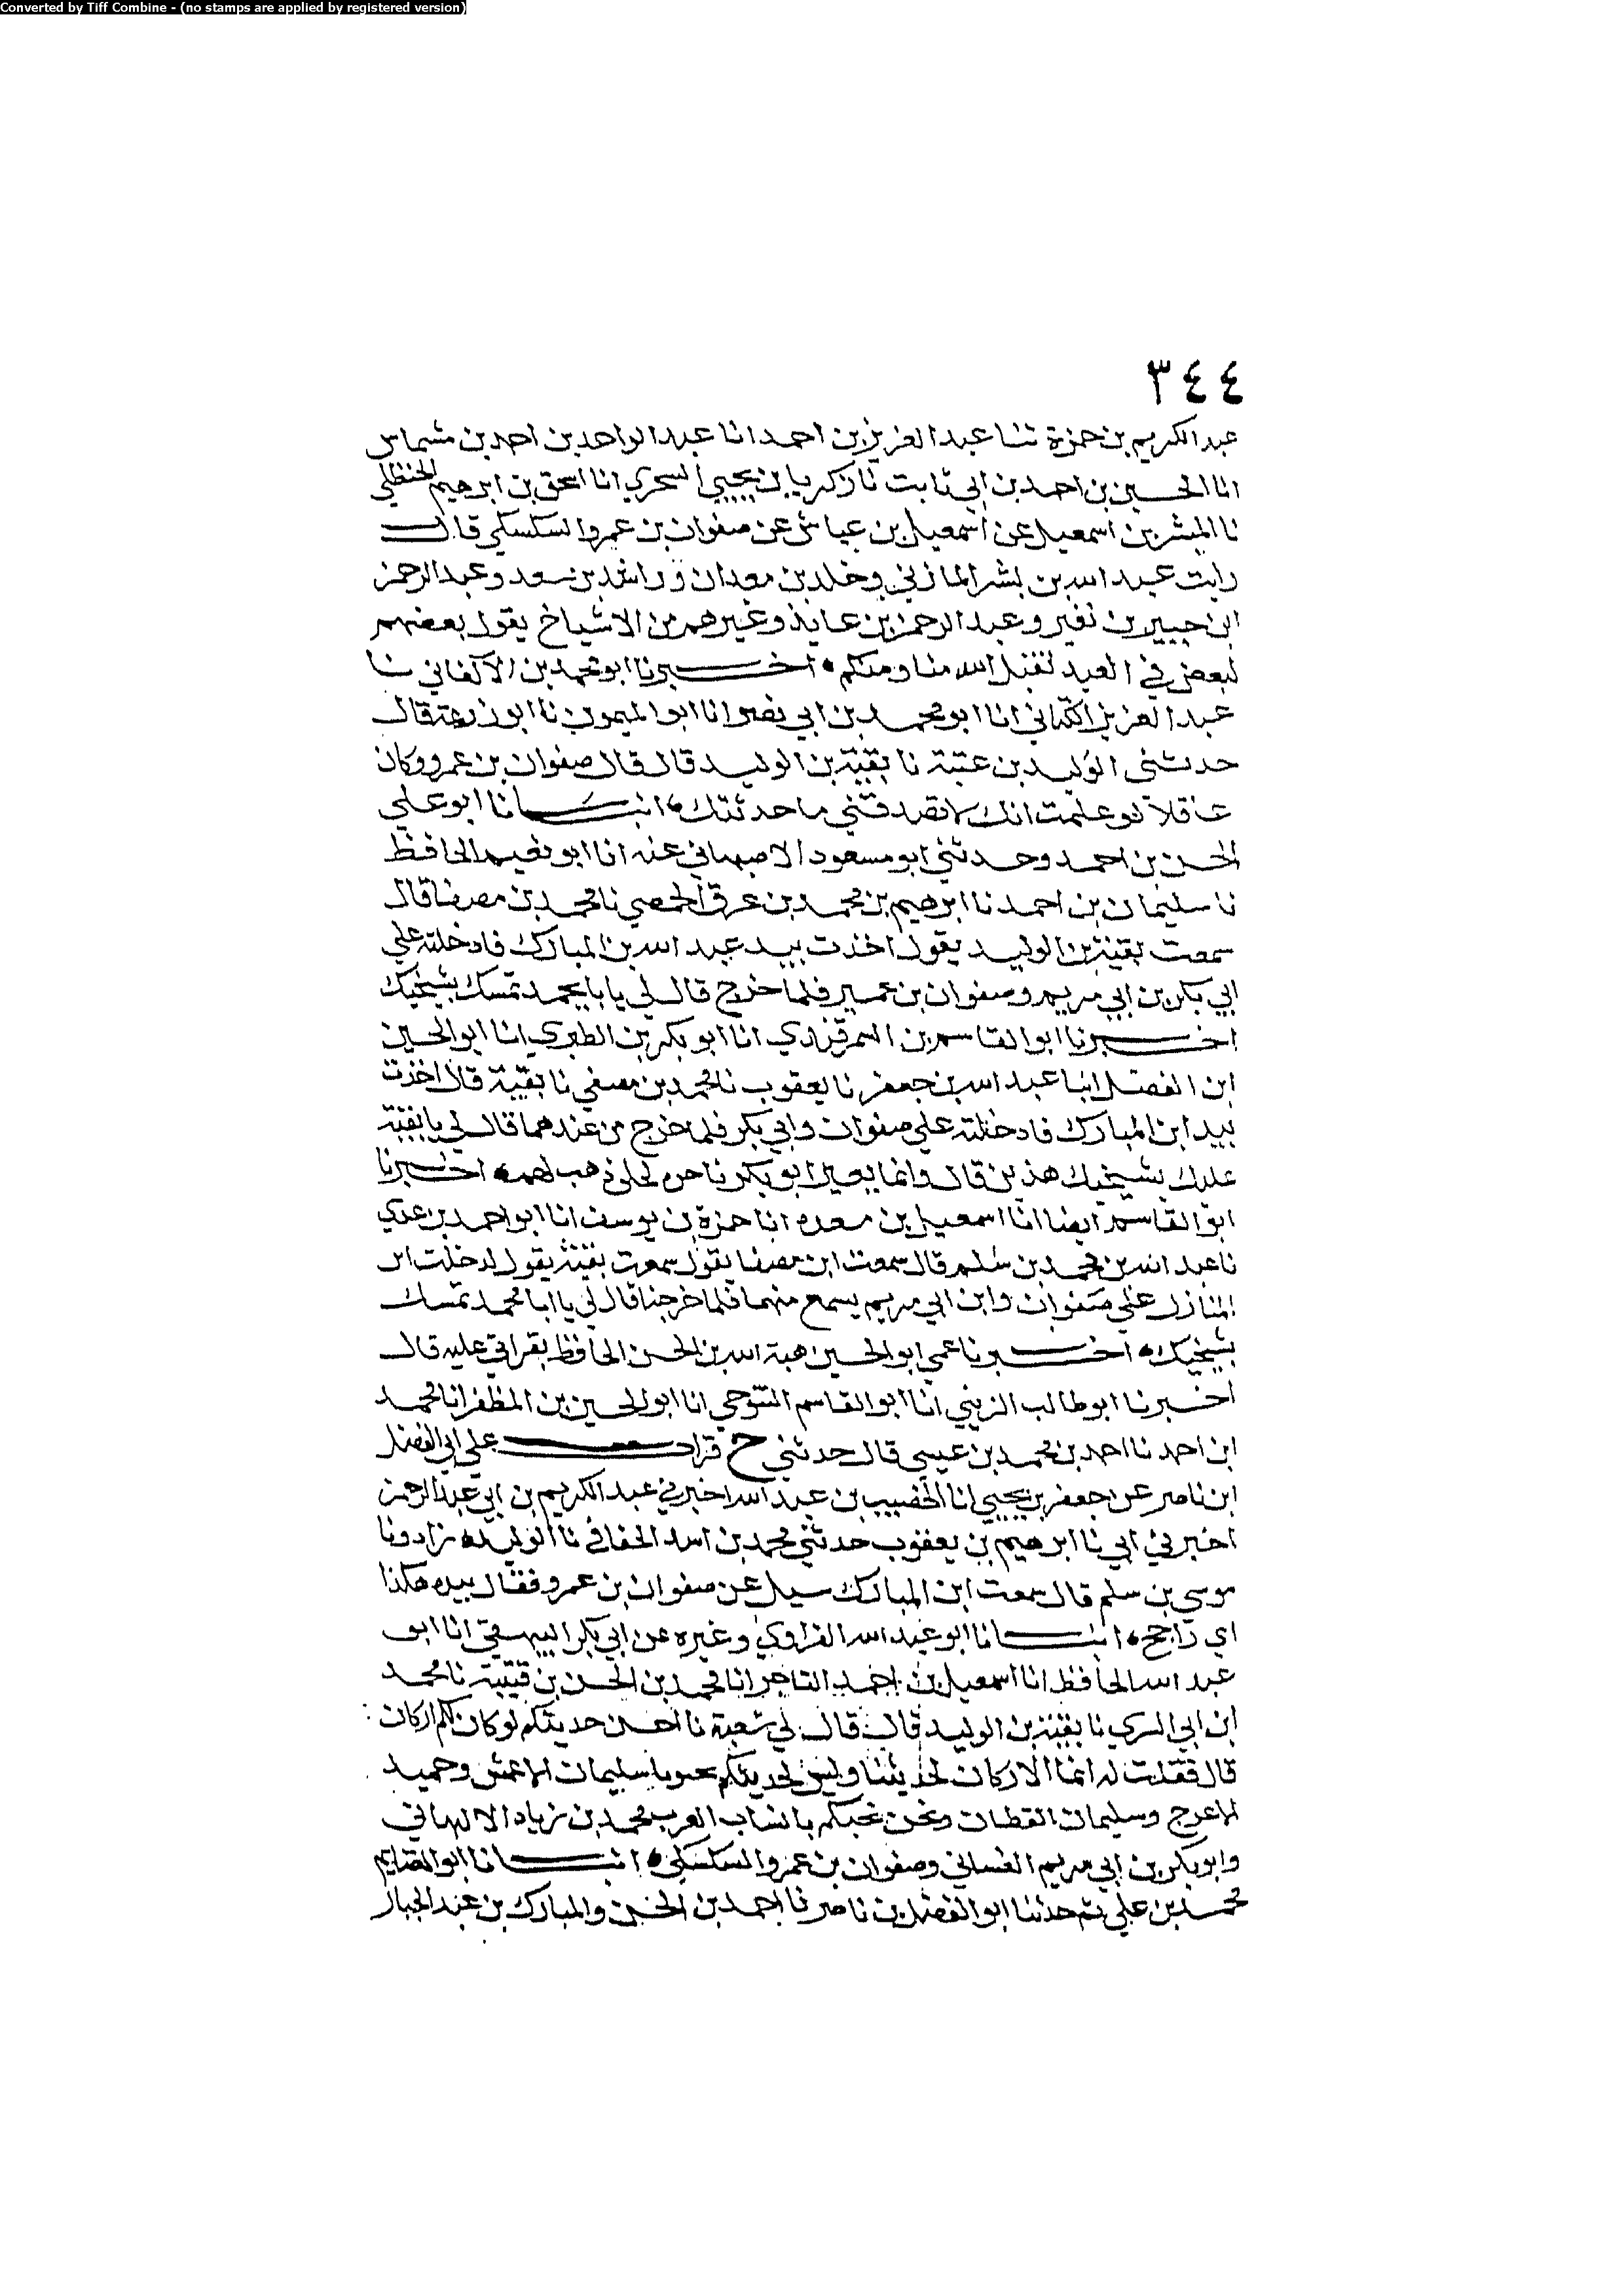 Converted by Tiff Combine - (no stamps are applied by registered version)
٣٤٤
عبد الكريم بن حمزة ثنا عبد العزيز بن احمد انا عبد الواحد بن احمد بن مشماس
انا الحسين بن احمد بن ابي ثابت نا زكريا بن يحيى السجزي انا اسحق بن ابرهيم الحنظلي
نا المبشر بن اسمعيل عن اسمعيل بن عياش عن صفوان بن عمرو السكسكي قال
رايت عبد الله بن بشر المازني وخلد بن معدان وراشد بن سعد وعبد الرحمن
ابن جبير بن نفير وعبد الرحمن بن عايذ وغيرهم من الاشياخ يقول بعضهم
لبعض في العيد تقبل الله منا ومنكم اخبرنا ابو محمد بن الاكفاني نا
عبد العزيز الكتاني انا ابو محمد بن ابي نصر انا ابو الميمون نا ابو زرعة قال
حدثني الوليد بن عتبة نا بقية بن الوليد قال قال صفوان بن عمرو وكان
عاقلا لو علمت انك لا تصدقني ما حدثتك انبانا ابو علي
الحسن بن احمد وحدثني ابو مسعود الاصبهاني عنه انا ابو نعيم الحافظ
نا سليمان بن احمد نا ابرهيم بن محمد بن عرق الحمصي نا محمد بن مصفا قال
سمعت بقية بن الوليد يقول اخذت بيد عبد الله بن المبارك فادخلته علي
ابي بكر بن ابي مريم وصفوان بن عمير فلما خرج قال لي يا با محمد تمسك بشيخيك
اخبرنا ابو القاسم بن السمرقندي انا ابو بكر بن الطبري انا ابو الحسين
ابن الفضل انبا عبد الله بن جعفر نا يعقوب نا محمد بن مصفي نا بقية قال اخذت
بيد ابن المبارك فادخلته علي صفوان وابي بكر فلما خرج من عندهما قال لي يا بقية
عليك بشيخيك هذين قال وانما ابو بكر اخبرنا
ابو القاسم ايضا انا اسمعيل بن مسعده انا حمزة بن يوسف انا ابو احمد بن عدي
نا عبد الله بن محمد بن سلم قال سمعت ابن مصفا يقول سمعت بقية يقول ادخلت ابن
علي صفوان وابن ابي مريم يسمع منهما فلما خرجنا قال لي يا ابا محمد تمسك
بشيخيك اخبرنا عمي ابو الحسين هبة الله بن الحسن الحافظ بقراتي عليه قال
اخبرنا ابو طالب الزيني انا ابو القاسم التنوخي انا ابو الحسين بن المظفر انا محمد
ابن احمد نا احمد بن محمد بن عيسي قال حدثني ح قرات علي ابي الفضل
ابن ناصر عن جعفر بن يحيي انا الخصيب بن عبد الله اخبرني عبد الكريم بن ابي عبد الرحمن
اخبرني ابي نا ابرهيم بن يعقوب حدثني محمد بن اسد نا الوليد زاد ونا
موسي بن سلم قال سمعت ابن المبارك سيل عن صفوان بن عمرو فقال بيده هكذا
اي راجح انبانا ابو عبد الله الفراوي وغيره عن ابي بكر البيهقي انا ابو
عبد الله الحافظ انا اسمعيل بن احمد التاجر انا محمد بن الحسن بن قتيبة نا محمد
ابن ابي السري نا بقية بن الوليد قال قال لي شعبة ما احسن حديثكم لو كان لكم اركان
قال فقلت له انما الاركان لحديثنا وليس لحديثكم سليمان الاعمش وحميد
الاعرج وسليمان القطان ونحن نجيكم بانساب العرب محمد بن زياد الالهاني
وابو بكر بن ابي مريم الغساني وصفوان بن عمرو السكسكي انبانا ابو الغنايم
محمد بن علي ثم حدثنا ابو الفضل بن ناصر نا احمد بن الحسن والمبارك بن عبد الجبار